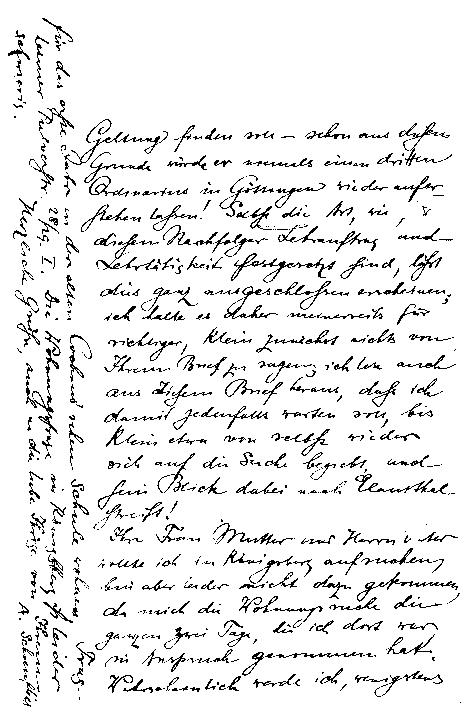 Geltung finden soll – schon aus diesem
Grunde würde er niemals einen dritten
Ordinarius in Göttingen wieder aufer-
stehen lassen! Selbst die Art, wie
diesem Nachfolger Lehrauftrag und
Lehrtätigkeit festgesetzt sind, läßt
dies ganz ausgeschlossen erscheinen;
ich halte es daher meinerseits für
richtiger, Klein zunächst nichts von
Ihrem Brief zu sagen; ich lese auch
aus Ihrem Brief heraus, daß ich
damit jedenfalls warten soll, bis
Klein etwa von selbst wieder
sich auf die Suche begiebt, und
sein Blick dabei nach Clausthal
streift!
Ihre Frau Mutter und Herrn Vater
wollte ich in Königsberg aufsuchen,
bin aber leider nicht dazu gekommen,
da mich die Wohnungssuche die
ganzen zwei Tage, die ich dort war
in Anspruch genommen hat.
Wahrscheinlich werde ich, wenigstens
für das erste Jahr in der alten
wohnen,
28, I. Die Wohnungsfrage in Königsberg ist leider
schwierig.
Herzliche Grüße, auch an die liebe
von Ihrem
A. Schoenflies